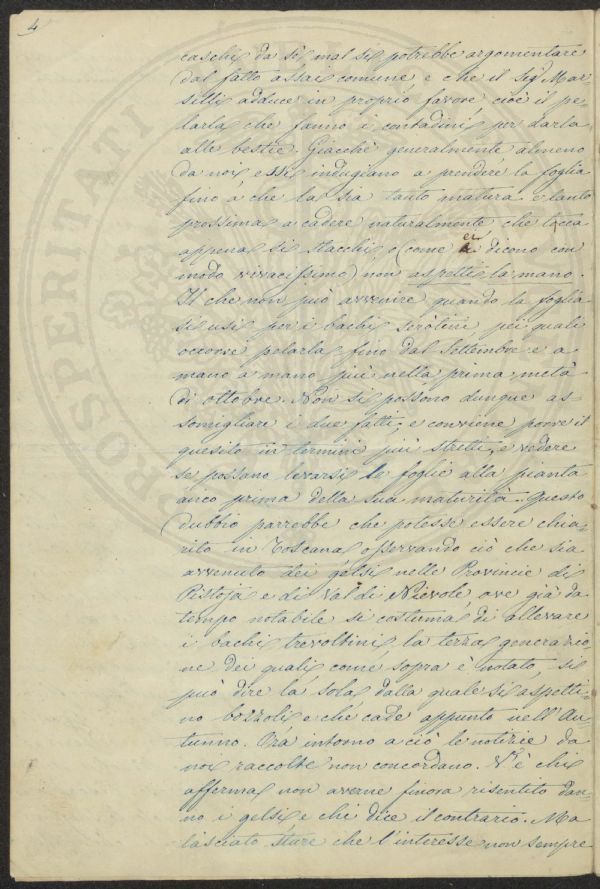 4
caschi da sè mal si potrebbe argomentare
dal fatto assai comune e che il Sig.r Mar-
silli adduce in proprio favore cioè il pe-
larla che fanno i contadini per darla
alle bestie. Giacchè generalmente almeno
da noi essi indugiano a prendere la foglia
fino a che la sia tanto matura e tanto
prossima a cadere naturalmente che tocca
appena si stacchi e (come ei dicono con
modo vivacissimo) non aspetti la mano.
Il che non può avvenire quando la foglia
si usi per i bachi serotini pei quali
occorse pelarla fino dal Settembre e a
mano a mano più nella prima metà
di ottobre. Non si possono dunque as-
somigliare i due fatti, e conviene porre il
quesito in termini più stretti, e vedere
se possano levarsi le foglie alla pianta
anco prima della sua maturità. Questo
dubbio parrebbe che potesse essere chia-
rito in Toscana osservando ciò che sia
avvenuto dei gelsi nelle Provincie di
Pistoja e di Val di Nievole ove già da
tempo notabile si costuma di allevare
i bachi trevoltini, la terza generazio-
ne dei quali come sopra è notato, si
può dire la sola dalla quale si aspetti-
no bozzoli e che cade appunto nell'Au-
tunno. Ora intorno a ciò le notizie da
noi raccolte non concordano. V'è chi
afferma non averne finora risentito dan-
no i gelsi e chi dice il contrario. Ma
lasciato stare che l'interesse non sempre
PROSPERITATI